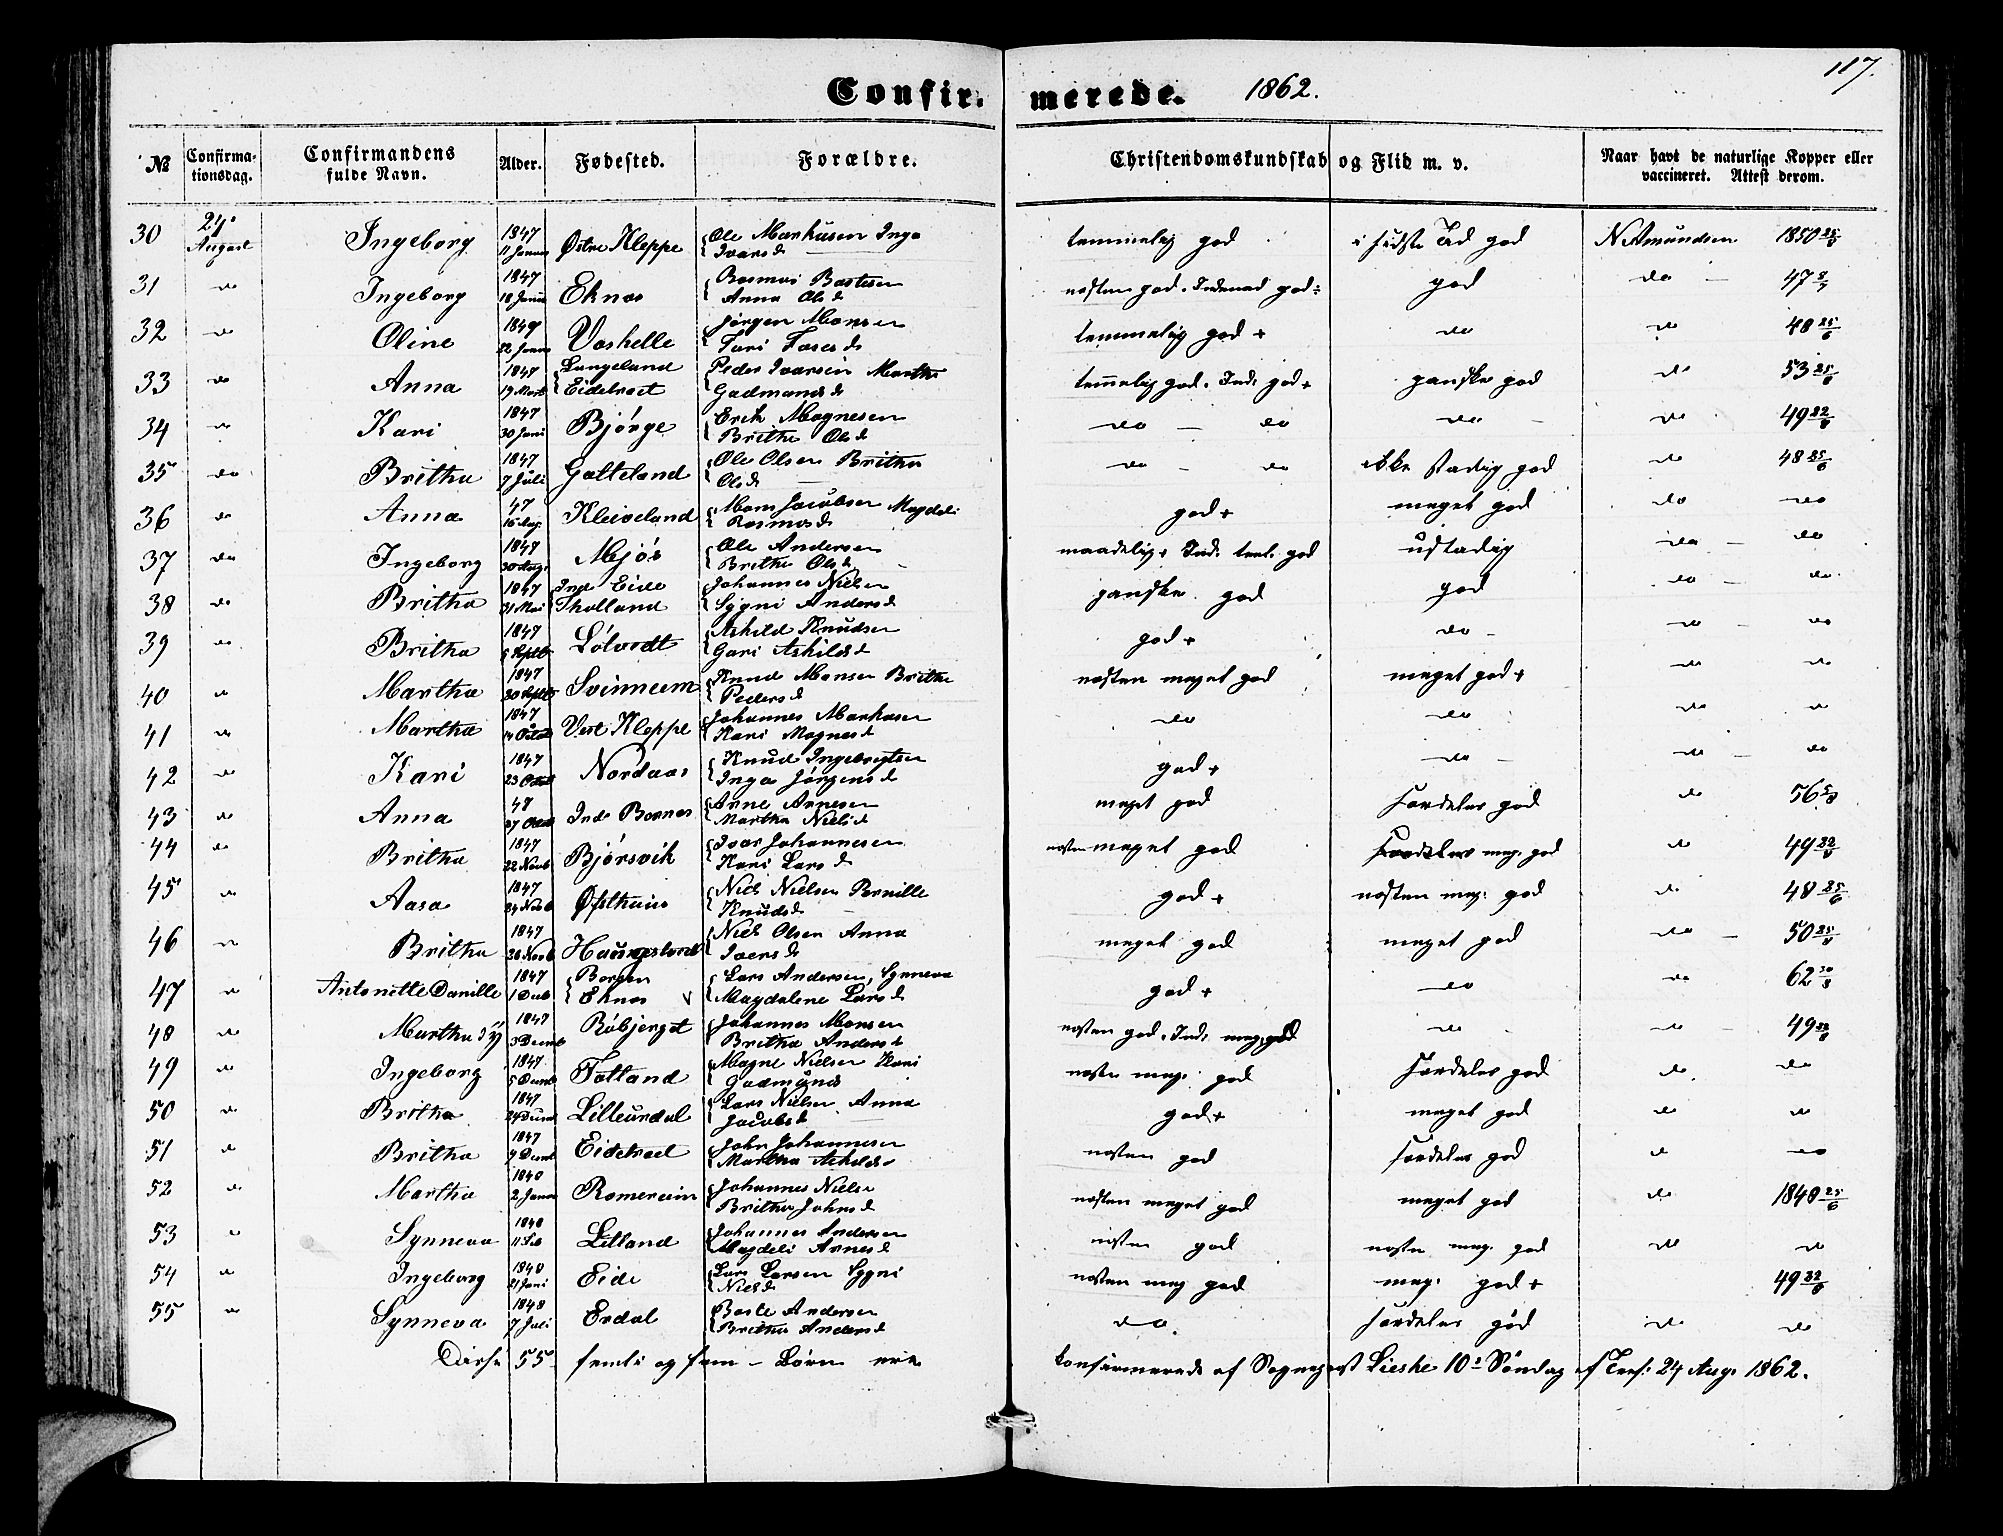 117.
Confirmerede. 1862.
№ Confirmationsdag. Confirmandens fulde Navn. Alder. Fødested. Forældre. Christendomskundskab og Flid m. v. Naar havt de naturlige Kopper eller vaccineret. Attest derom.
30 24 August Ingeborg 1847 Østre Kleppe Ole Markusen Inga Ivarsd temmelig god i sidste Tid god N Amundsen 1850 25/
31 do Ingeborg 1847 18 Eknes Rasmus Bastesen Anna Olsd næsten god. god do 47
32 do Oline 1847 22 Voshelle Jørgen Monsen temmelig god + do do 48 25/6
33 do Anna 1847 19 Langeland Eidetvet Peder Ivarsen Martha Gudmunds temmelig god. Ind. god + ganske god do 53 25/6
34 do Kari 1847 30 Juni Bjørge Erik Magnesen Britha Olsd do do do do 49
35 do Britha 1847 7 Juli Galteland Ole Olsen Britha Olsd do do ikke stadig god do 48 25/6
36 do Anna 47 16 Aug. Kleiveland Mons Jacobsen Magdeli Rasmusd god + meget god do do
37 do Ingeborg 1847 30 Aug. Mjøs Ole Andersen Britha Olsd maadelig + Ind. god ustadig do do
38 do Britha 1847 31 Mai Ind Eide Tholland Johannes Nielsen Sygni Andersd ganske god god do do
39 do Britha 1847 Septb Løtvedt Askild Knudsen Gari Askildsd god + do do do
40 do Martha 1847 30 Septb Svinneem Knud Monsen Britha Pedersd næsten meget god meget god + do do
41 do Martha 1847 14 Octob Vest Kleppe Johannes Markusen Kari Magnesd do do do do
42 do Kari 1847 23 Octob Nordaas Knud Ingebrigtsen Inga Jørgensd god + do do do
43 do Anna 47 27 Octob Ind Arne Arnesen Martha Nielsd meget god særdeles god do 56
44 do Britha 1847 22 Novb Bjørsvik Ivar Johannesen Kari Larsd næsten meget god særdeles meg. god do 49
45 do Aasa 1847 24 Novb Østhuus Niels Nielsen Pernille Knudsd god + næsten meg. god do 48 25/6
46 do Britha 1847 28 Novb Niels Olsen Anna Iversd meget god meget god do 50
47 do Antonette Danille 1847 1 Decb Borgen Eknes Lars Andersen, Synneva Magdalene Larsd god + do do 62
48 do Martha 1847 3 Decmb Johannes Monsen Britha Andersd næsten god. Ind. meg. god do do 49
49 do Ingeborg 1847 5 Decmb Totland Magne Nielsen Kari Gudmunds næsten meg. god særdeles god do do
50 do Britha 1847 24 Decmb Lilleurdal Lars Nielsen Anna Jacobsd god + meget god do do
51 do Britha 1847 9 Decmb Eidetveet John Johannesen Martha Askildsd næsten god særdeles god do do
52 do Martha 1848 2 Januar Romereim Johannes Nielsen Britha Johnsd næsten meget god meget god do 1848 25/6
53 do Synneva 1848 11 Feb Litland Johannes Andersen Magdeli Arnesd næsten god næsten meg. god do do
54 do Ingeborg 1848 21 Juni Eide Lars Larsen Sygni Nielsd næsten meg god meg. god + 49
55 do Synneva 1848 7 Juli Erdal Baste Andersen Britha Andersd do. særdeles god do do
Disse 55 femti og fem – Børn ere konfirmerede af Sognepræst Lieske 10de Søndag ef Tref. 24 Aug. 1862.